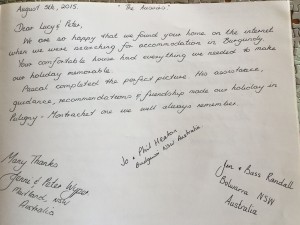 August 5th, 2015. "The
Dear Lucy & Peter,
We are so happy that we found your home on the internet
when we were searching for accomodation in Burgundy.
Your comfortable house had everything we needed to make
our holiday memorable.
Pascal completed the perfect picture. His assistance,
guidance, recommendations & friendship made our holiday in
Puligny - Montrachet one we will always remember.
Many Thanks
Jenni & Peter Wyper
Maitland, NSW
Australia
Jo & Phil Heaton
NSW Australia
Jen & Bass Randall
Bolwarra NSW
Australia